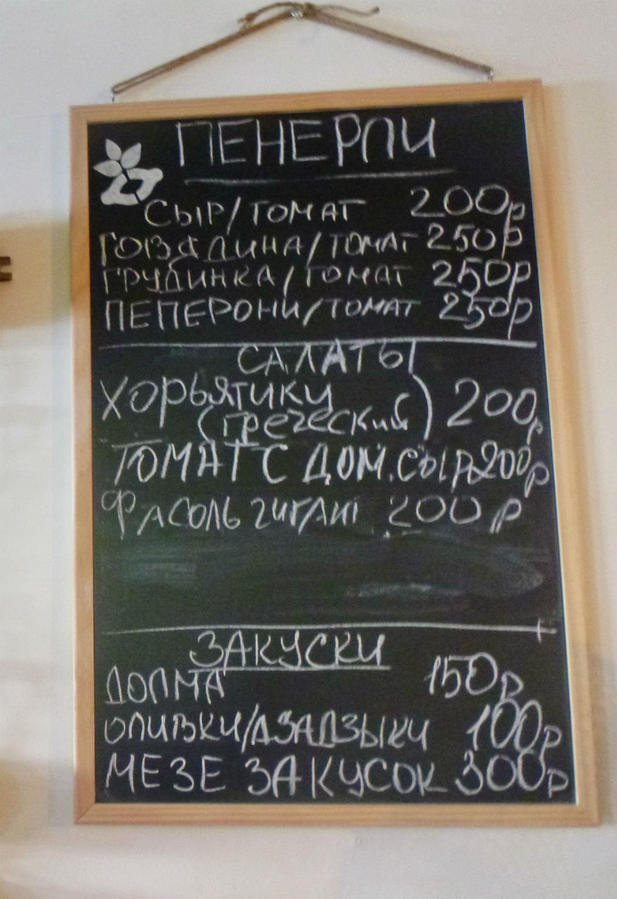 ПЕНЕРЛИ
СЫР/ТОМАТ 200р
ГОВЯДИНА/ТОМАТ 250р
ГРУДИНКА/ТОМАТ 250р
ПЕПЕРОНИ/ТОМАТ 250р
САЛАТЫ
ХОРЬЯТИКИ
(греческий) 200р
ТОМАТ С ДОМ.СЫР 200р
ФАСОЛЬ ГИГАНТ 200р
ЗАКУСКИ
ДОЛМА 150р
ОЛИВКИ/ДЗАДЗЫКИ 100р
МЕЗЕ ЗАКУСОК 300р